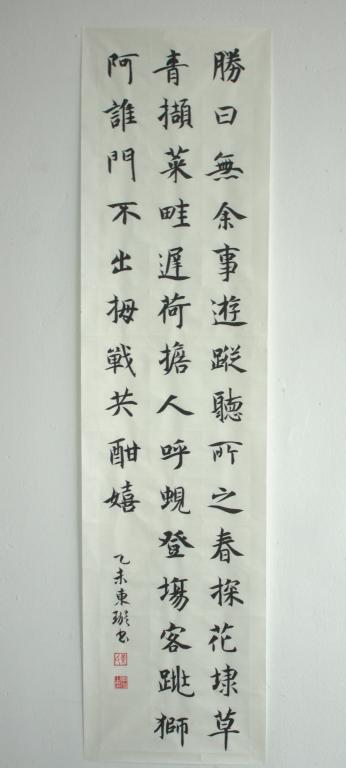 勝日無余事遊蹤聽所之春探花埭草
青擷菜畦遲荷擔人呼蜆登場客跳獅
阿誰門不出拇戰共酣嬉
乙未東璇書